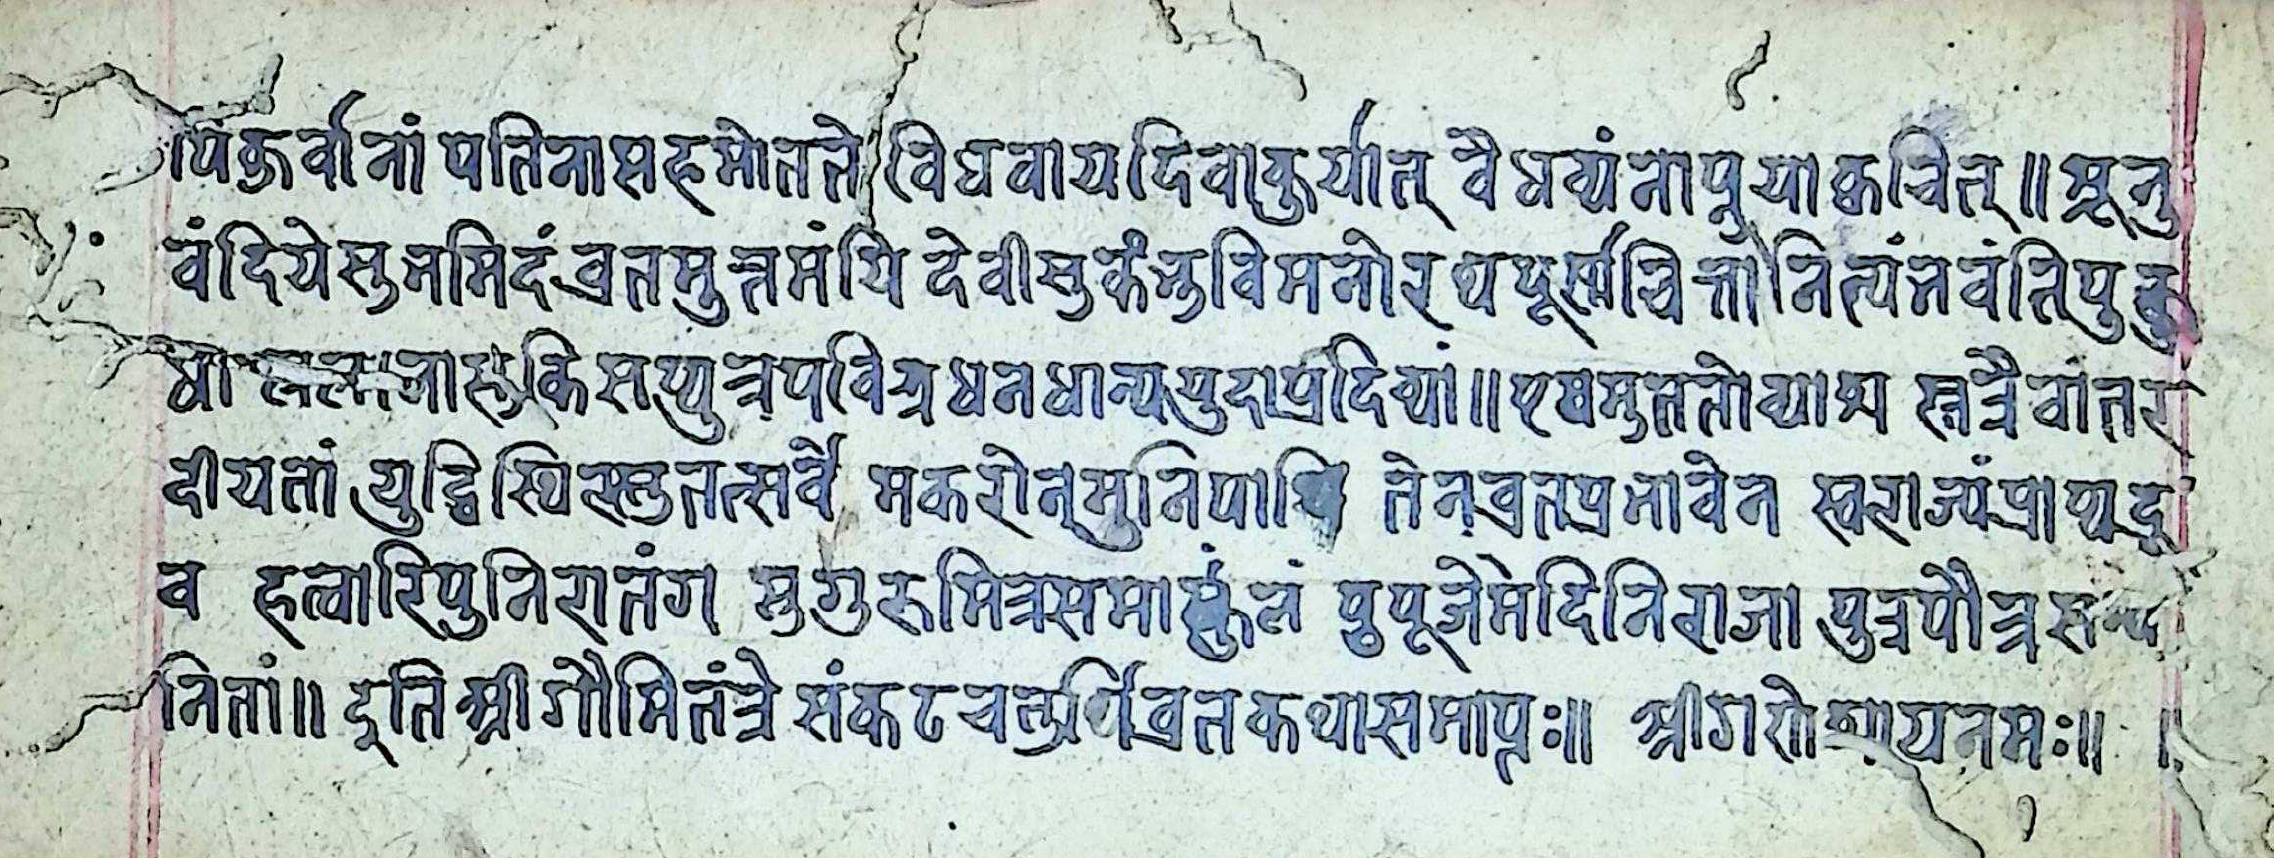 पिकुर्वानां पतिनासहमोतते विधवायदिवाकुर्यात् वैधव्यंनाप्नुयाक्वचित्॥ सृनु
वंदियेसुभमिदंव्रतमुत्तमंयि देवीसुकंभुविमनोरथपूर्णचित्तोनित्यंभवंतिपु
धा सप्पुत्रपवित्रधनधान्ययुदाप्रदिव्यां॥ एषमुततोव्याश स्तत्रैवांतर
दीयतां युद्धिस्थिरस्तुतत्सर्वं मकरोन्मुनिपा तेनव्रतप्रभावेन स्वराज्यंप्राप्यदू
व हत्वारिपुनिरातंग सुगुरुमित्रसमाकुलं पुपूजेमेदिनिराजा पुत्रपौत्र
नितां॥ इति श्रीगौमितंत्रे संकटचतुर्थिव्रतकथासमाप्तः॥ श्रीगणेशायनमः॥ ।